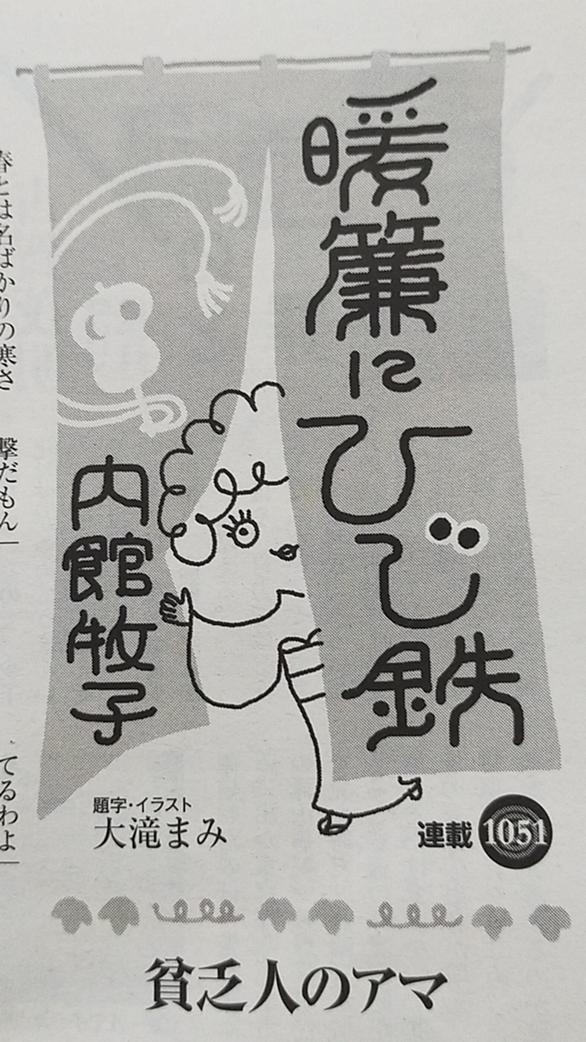 暖簾にひじ鉄
内館牧子
題字・イラスト
大滝まみ
連載 1051
貧乏人のアマ
春とは名ばかりの寒さ
撃だもん
てるわよ